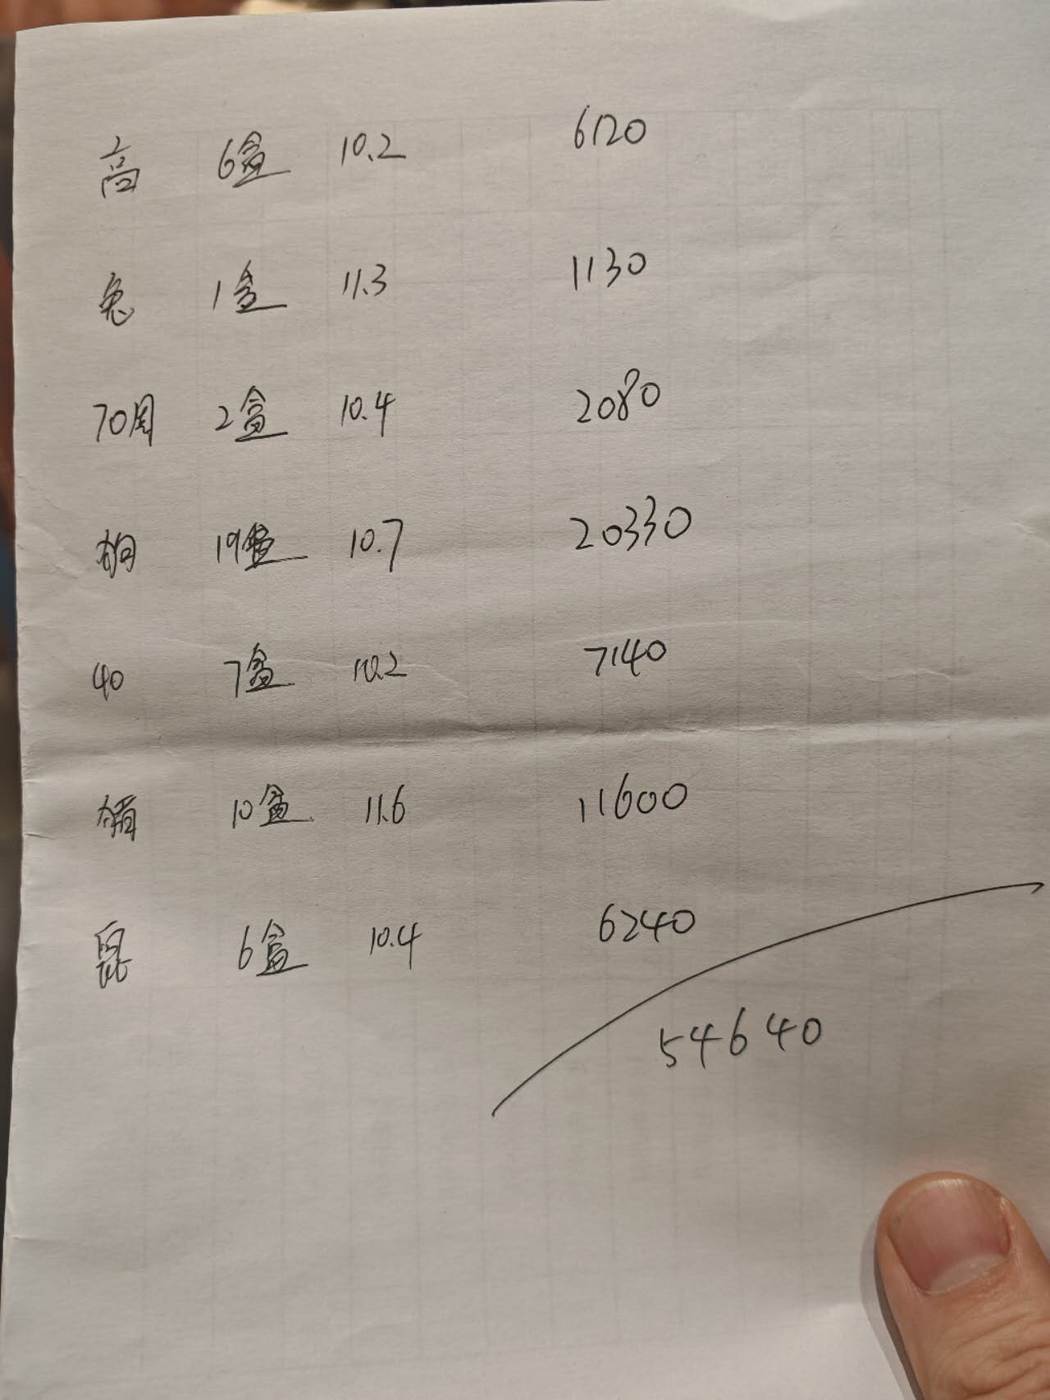 高 6盒 10.2 6120
兔 1盒 11.3 1130
70周 2盒 10.4 2080
狗 19盒 10.7 20330
40 7盒 10.2 7140
10盒 11.6 11600
鼠 6盒 10.4 6240
54640